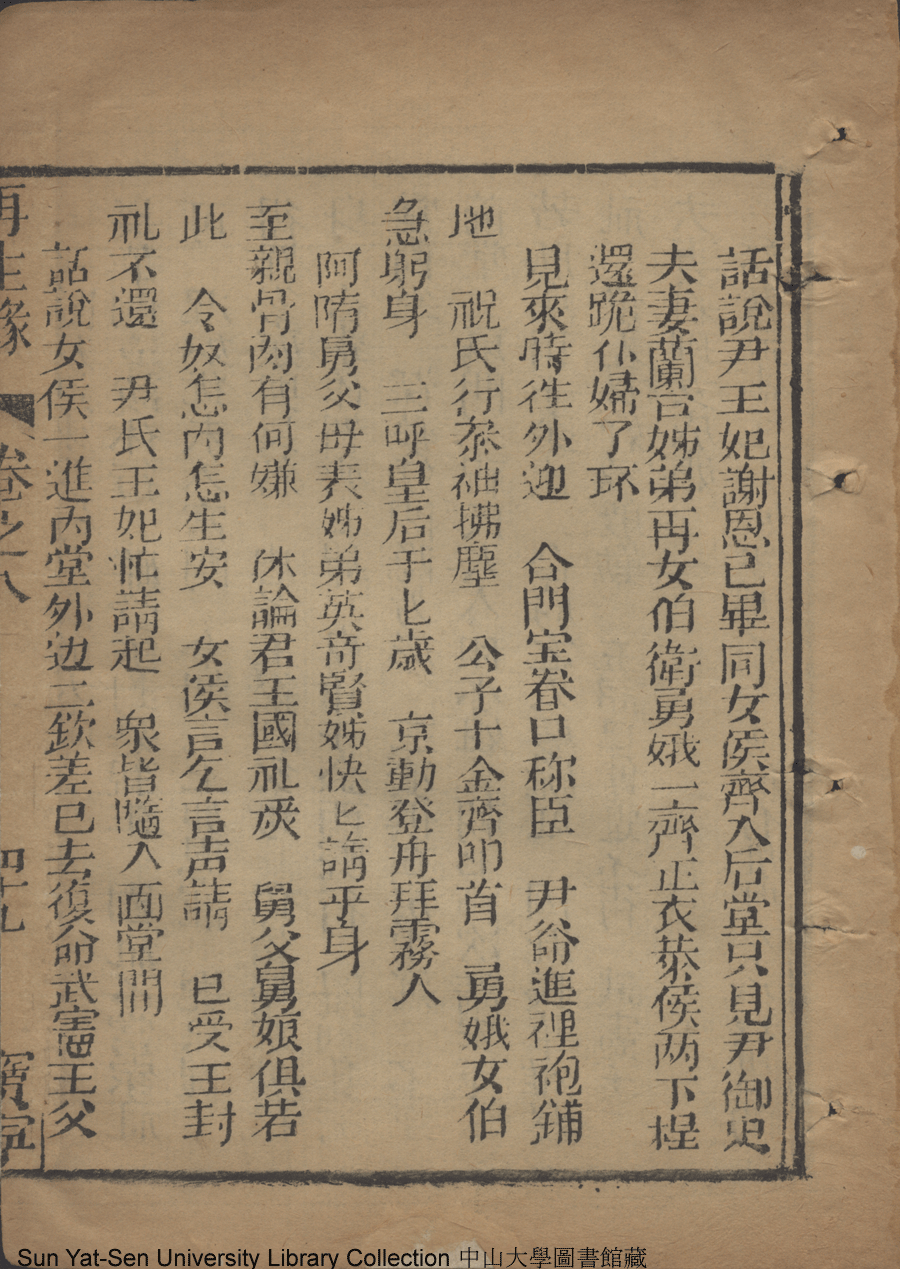 話說尹王妃謝恩已畢同女侯齊入后堂只見尹御史
夫妻蘭台姊弟再女伯衛勇娥一齊正衣恭侯两下捏
還跪仆婦了环
見來時徃外迎　合門宝眷口称臣　尹爺進裡袍鋪
地　祝氏行叅袖拂塵　公子十金齊叩首　勇娥女伯
急躬身　三呼皇后千匕歲　京動登舟拜霧人
阿隋舅父母表姊弟英奇賢姊快匕請平身
至親骨肉有何嫌　休論君王國礼炭　舅父舅娘俱若
此　令奴怎内怎生安　女侯言乞言声請　已受王封
礼不還　尹氏王妃忙請起　衆皆隨入面堂間
話說女侯一進内堂外边二欽差已去復命武憲王父
再生緣　卷之八　四十九　寳寧
Sun Yat-Sen University Library Collection 中山大學圖書館藏